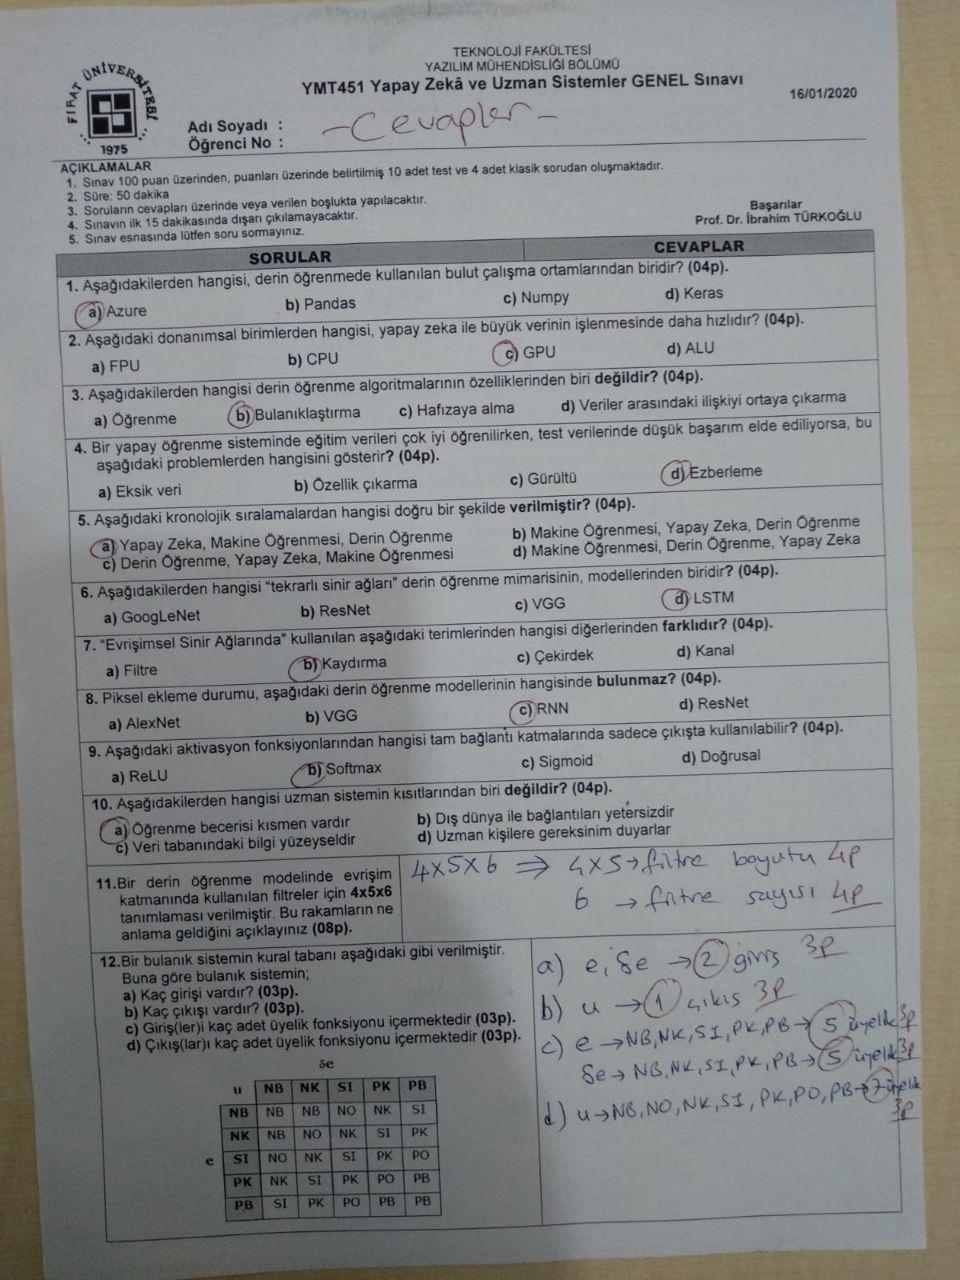 FIRAT ÜNİVERSİTESİ
1975
TEKNOLOJİ FAKÜLTESİ
YAZILIM MÜHENDİSLİĞİ BÖLÜMÜ
YMT451 Yapay Zekâ ve Uzman Sistemler GENEL Sınavı
16/01/2020
Adı Soyadı :
- Cevaplar -
Öğrenci No :
AÇIKLAMALAR
1. Sınav 100 puan üzerinden, puanları üzerinde belirtilmiş 10 adet test ve 4 adet klasik sorudan oluşmaktadır.
2. Süre: 50 dakika
3. Soruların cevapları üzerinde veya verilen boşlukta yapılacaktır.
4. Sınavın ilk 15 dakikasında dışarı çıkılamayacaktır.
5. Sınav esnasında lütfen soru sormayınız.
Başarılar
Prof. Dr. İbrahim TÜRKOĞLU
SORULAR CEVAPLAR
1. Aşağıdakilerden hangisi, derin öğrenmede kullanılan bulut çalışma ortamlarından biridir? (04p).
a) Azure b) Pandas c) Numpy d) Keras
2. Aşağıdaki donanımsal birimlerden hangisi, yapay zeka ile büyük verinin işlenmesinde daha hızlıdır? (04p).
a) FPU b) CPU c) GPU d) ALU
3. Aşağıdakilerden hangisi derin öğrenme algoritmalarının özelliklerinden biri değildir? (04p).
a) Öğrenme b) Bulanıklaştırma c) Hafızaya alma d) Veriler arasındaki ilişkiyi ortaya çıkarma
4. Bir yapay öğrenme sisteminde eğitim verileri çok iyi öğrenilirken, test verilerinde düşük başarım elde ediliyorsa, bu
aşağıdaki problemlerden hangisini gösterir? (04p).
a) Eksik veri b) Özellik çıkarma c) Gürültü d) Ezberleme
5. Aşağıdaki kronolojik sıralamalardan hangisi doğru bir şekilde verilmiştir? (04p).
a) Yapay Zeka, Makine Öğrenmesi, Derin Öğrenme b) Makine Öğrenmesi, Yapay Zeka, Derin Öğrenme
c) Derin Öğrenme, Yapay Zeka, Makine Öğrenmesi d) Makine Öğrenmesi, Derin Öğrenme, Yapay Zeka
6. Aşağıdakilerden hangisi "tekrarlı sinir ağları" derin öğrenme mimarisinin, modellerinden biridir? (04p).
a) GoogLeNet b) ResNet c) VGG d) LSTM
7. "Evrişimsel Sinir Ağlarında" kullanılan aşağıdaki terimlerinden hangisi diğerlerinden farklıdır? (04p).
a) Filtre b) Kaydırma c) Çekirdek d) Kanal
8. Piksel ekleme durumu, aşağıdaki derin öğrenme modellerinin hangisinde bulunmaz? (04p).
a) AlexNet b) VGG c) RNN d) ResNet
9. Aşağıdaki aktivasyon fonksiyonlarından hangisi tam bağlantı katmalarında sadece çıkışta kullanılabilir? (04p).
a) ReLU b) Softmax c) Sigmoid d) Doğrusal
10. Aşağıdakilerden hangisi uzman sistemin kısıtlarından biri değildir? (04p).
a) Öğrenme becerisi kısmen vardır b) Dış dünya ile bağlantıları yetersizdir
c) Veri tabanındaki bilgi yüzeyseldir d) Uzman kişilere gereksinim duyarlar
11.Bir derin öğrenme modelinde evrişim
katmanında kullanılan filtreler için 4x5x6
tanımlaması verilmiştir. Bu rakamların ne
anlama geldiğini açıklayınız (08p).
4x5x6 ⇒ 4x5→filtre boyutu 4p
6 → filtre sayısı 4p
12.Bir bulanık sistemin kural tabanı aşağıdaki gibi verilmiştir.
Buna göre bulanık sistemin;
a) Kaç girişi vardır? (03p).
b) Kaç çıkışı vardır? (03p).
c) Giriş(ler)i kaç adet üyelik fonksiyonu içermektedir (03p).
d) Çıkış(lar)ı kaç adet üyelik fonksiyonu içermektedir (03p).
δe
u NB NK SI PK PB
NB NB NB NO NK SI
NK NB NO NK SI PK
e SI NO NK SI PK PO
PK NK SI PK PO PB
PB SI PK PO PB PB
a) e, δe → 2 giriş 3p
b) u → 1 çıkış 3p
c) e →NB,NK,SI,PK,PB→ 5 üyelik 3p
δe → NB,NK,SI,PK,PB→ 5 üyelik 3p
d) u→NB,NO,NK,SI,PK,PO,PB→ 7 üyelik
3p